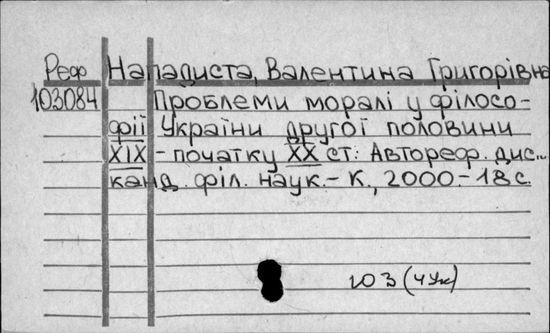 Реф Нападиста, Валентина Григорівна
103084 Проблеми моралі у філосо-
фії України другої половини
XIX - початку XX ст: Автореф. дис...
канд. філ. наук.- К., 2000.- 18 с.
ЮЗ (4Ук)